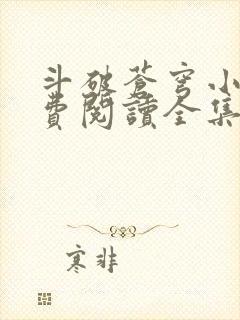 斗破蒼穹小
費閱讀全集
寒非